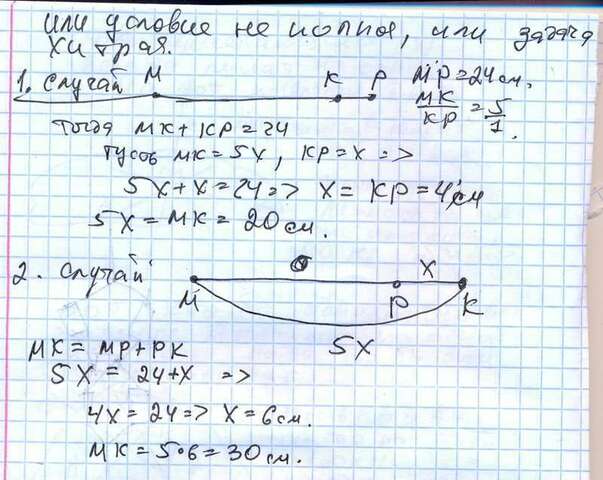 или условие не полная, или задача
хитрая.
1. Случай M K P MP = 24 см.
MK/KP = 5/1.
тогда MK + KP = 24
пусть MK = 5x, KP = x =>
5x + x = 24 => x = KP = 4 см
5x = MK = 20 см.
2. Случай x
M P K
5x
MK = MP + PK
5x = 24 + x =>
4x = 24 => x = 6 см.
MK = 5·6 = 30 см.